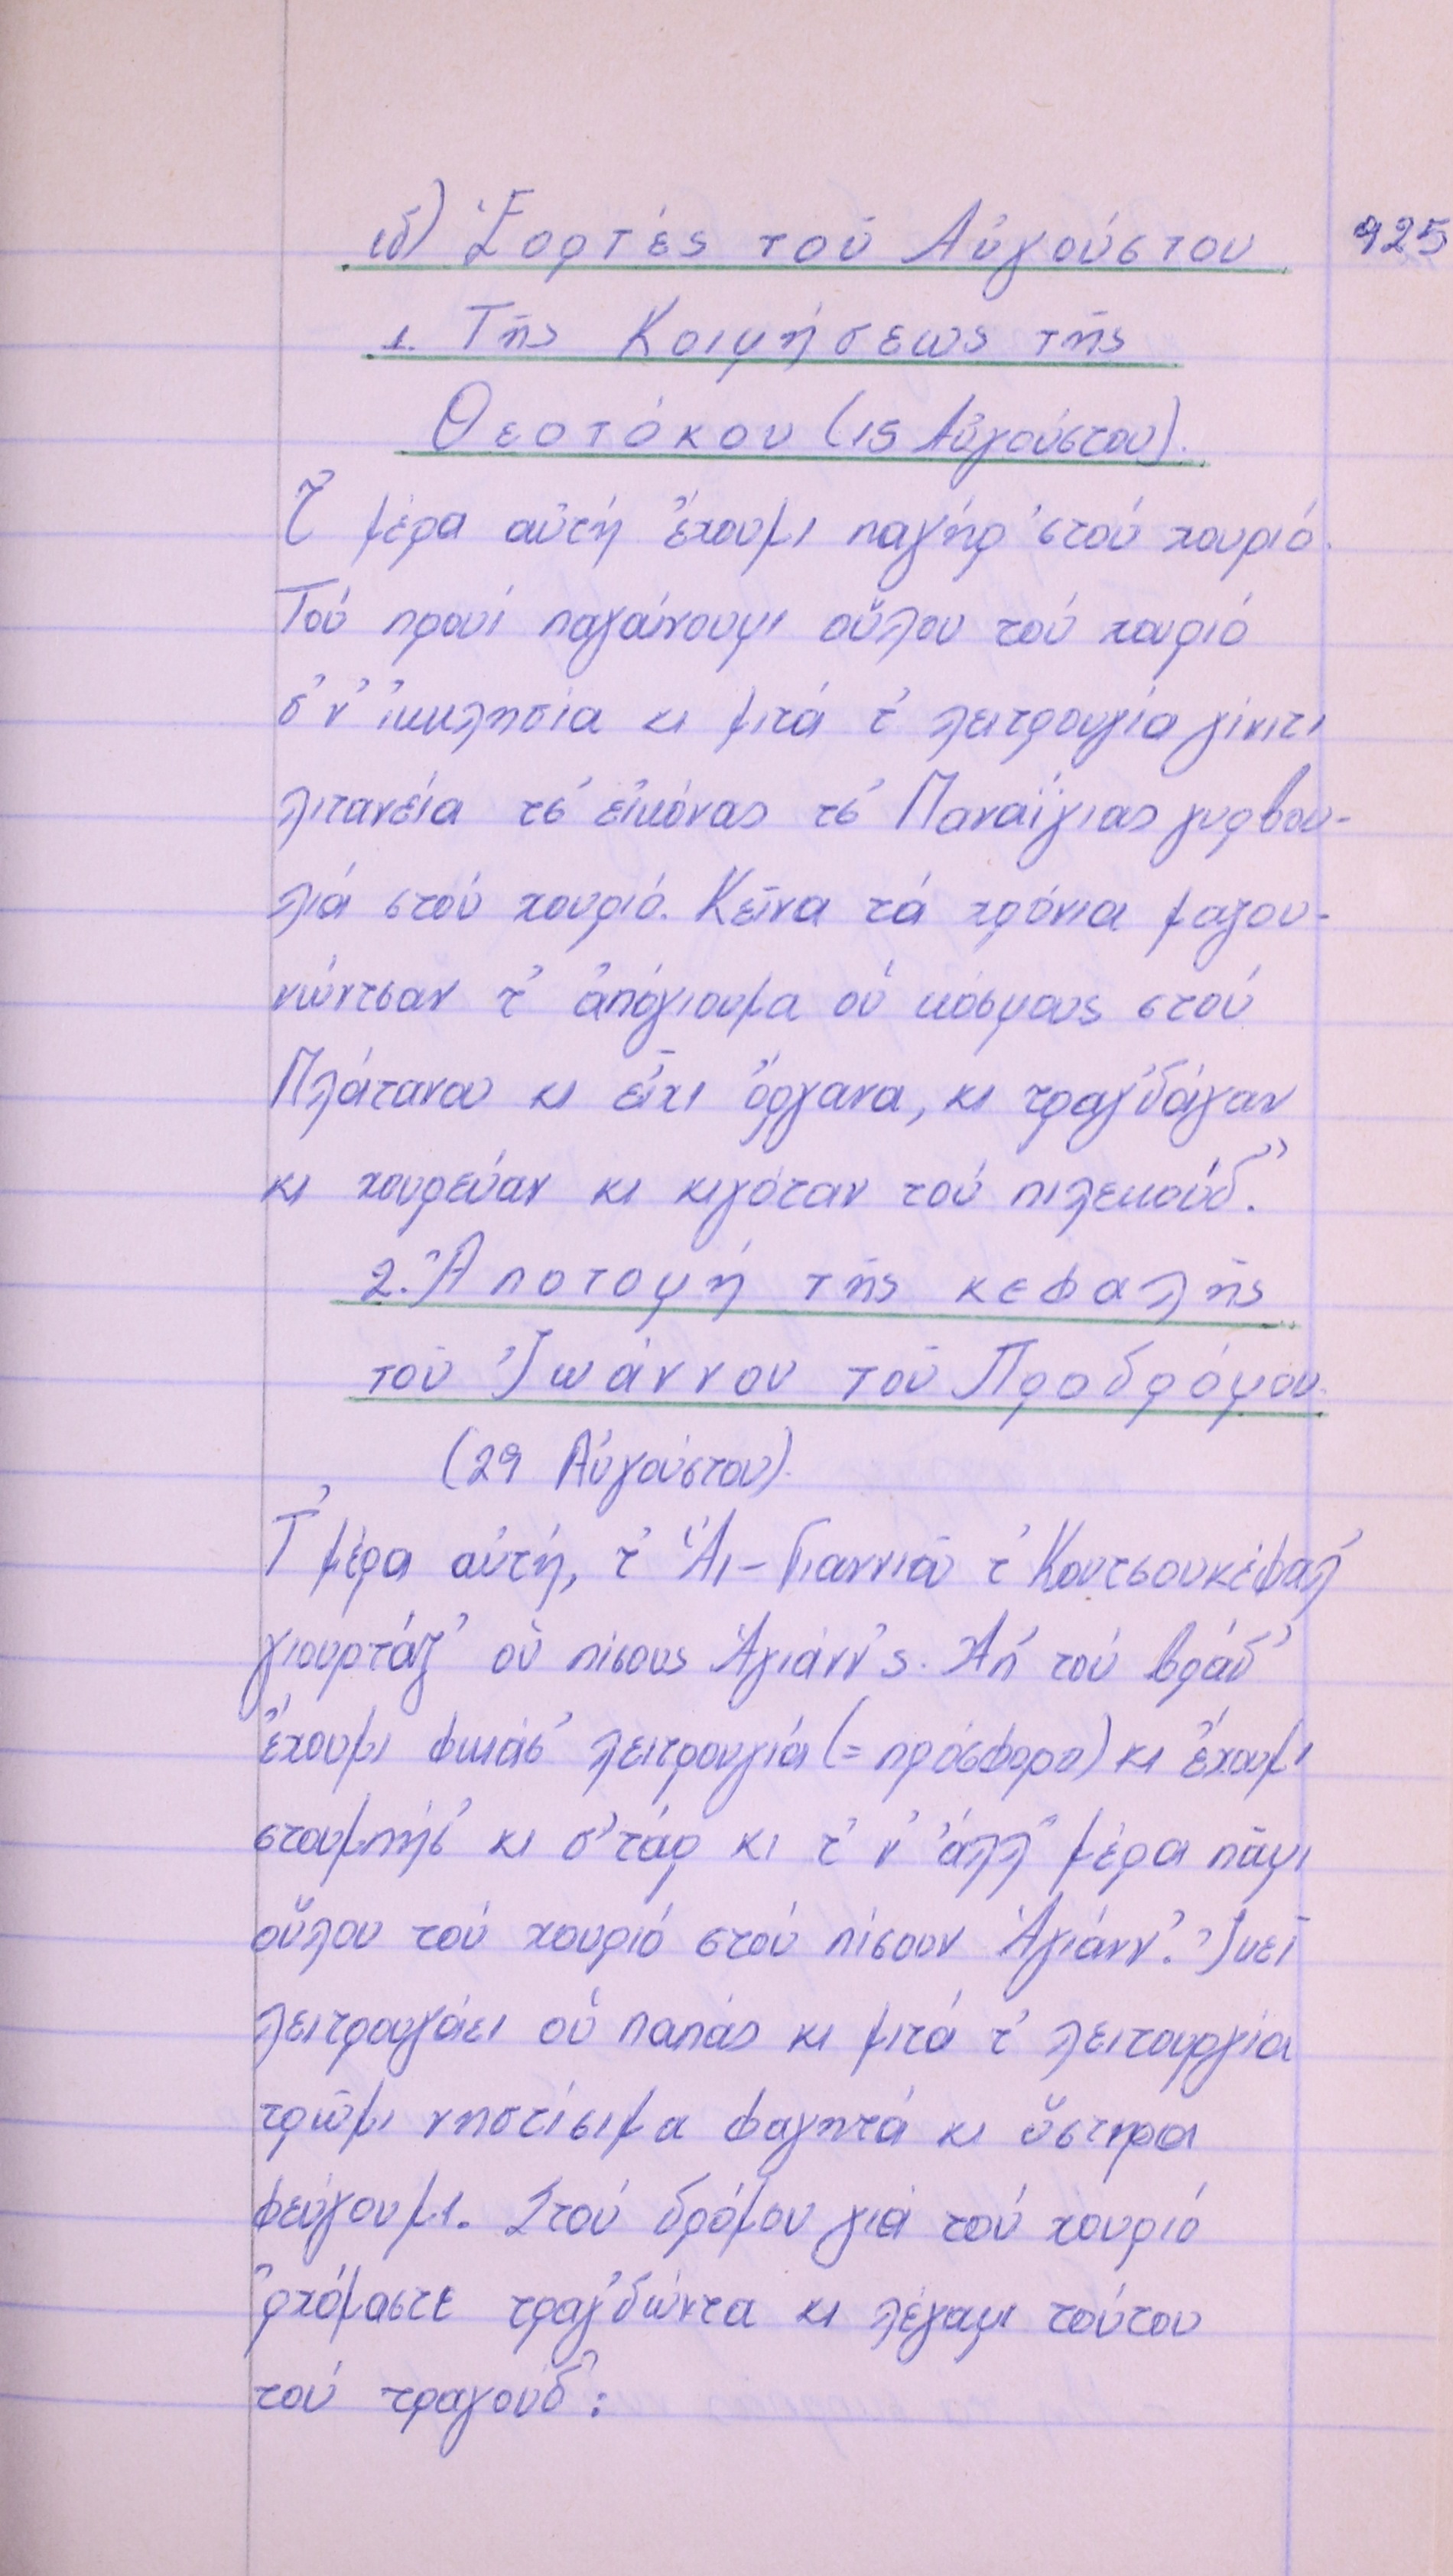 ιδ) Ἑορτές τοῦ Αὐγούστου
925
1. Τῆς Κοιμήσεως τῆς
Θεοτόκου (15 Αὐγούστου).
Τ᾿ μέρα αὐτή ἔχουμι παγήρ ᾿στού χουριό.
Τού πρωί παγαίνουμι οὕλου τού χουριό
σ᾿ν᾿ ἰκκλησία κι μιτά τ᾿ λειτρουγία γίνιτι
λιτανεία τσ᾿ εἰκόνας τσ᾿ Παναΐγιας γυρβου-
λιά στού χουριό. Κεῖνα τά χρόνια μαζου-
νιώντσαν τ᾿ ἀπόγιουμα οὑ κόσμους στού
Πλάτανου κι εἶχι ὄργανα, κι τραγ᾿δάγαν
κι χουρεύαν κι κιγόταν τού πιλεκούδ᾿᾿.
2. Ἀποτομή τῆς κεφαλῆς
τοῦ Ἰωάννου τοῦ Προδρόμου.
(29 Αὐγούστου).
Τ᾿ μέρα αὐτή, τ᾿ Ἁι-Γιαννιοῦ τ᾿ Κουτσουκέφαλ᾿
γιουρτάζ᾿ οὑ πίσους Ἁγιάνν᾿ς. Ἀπ᾿ τού βράδ᾿
ἔχουμι φκιάσ᾿ λειτρουγιά (= πρόσφορο) κι ἔχουμι
στουμπήσ᾿ κι σ᾿τάρ κι τ᾿ ν᾿ ἄλλ᾿ μέρα πᾶμι
οὕλου τού χουριό στού πίσουν Ἁγιάνν᾿. Ἰκεῖ
λειτρουγάει οὑ παπάς κι μιτά τ᾿ λειτουργία
τρῶμι νηστίσιμα φαγητά κι ὕστιρα
φεύγουμι. Στού δρόμου γιά τού χουριό
᾿ρχόμαστε τραγ᾿δώντα κι λέγαμι τούτου
τού τραγούδ᾿: